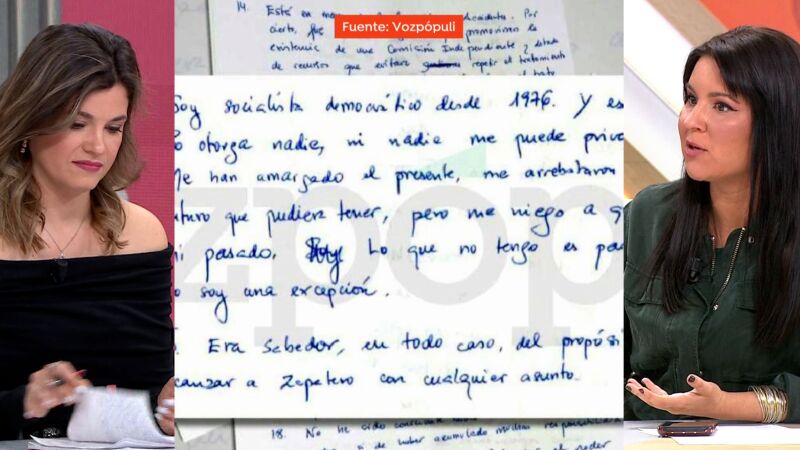 Fuente: Vozpópuli
14. Está en
cierto, promovimos la
existencia de una Comisión Independiente y dotada
de recursos que evitara repetir el tratamiento
Soy socialista democrático desde 1976. Y es
lo otorga nadie, ni nadie me puede priva
Me han amargado el presente, me arrebataron
turo que pudiera tener, pero me niego a q
mi pasado. Lo que no tengo es pa
o soy una excepción.
Era sabedor, en todo caso, del propósi
canzar a Zapatero con cualquier asunto.
zpóp
18. No he sido
si de haber acumulado muchas